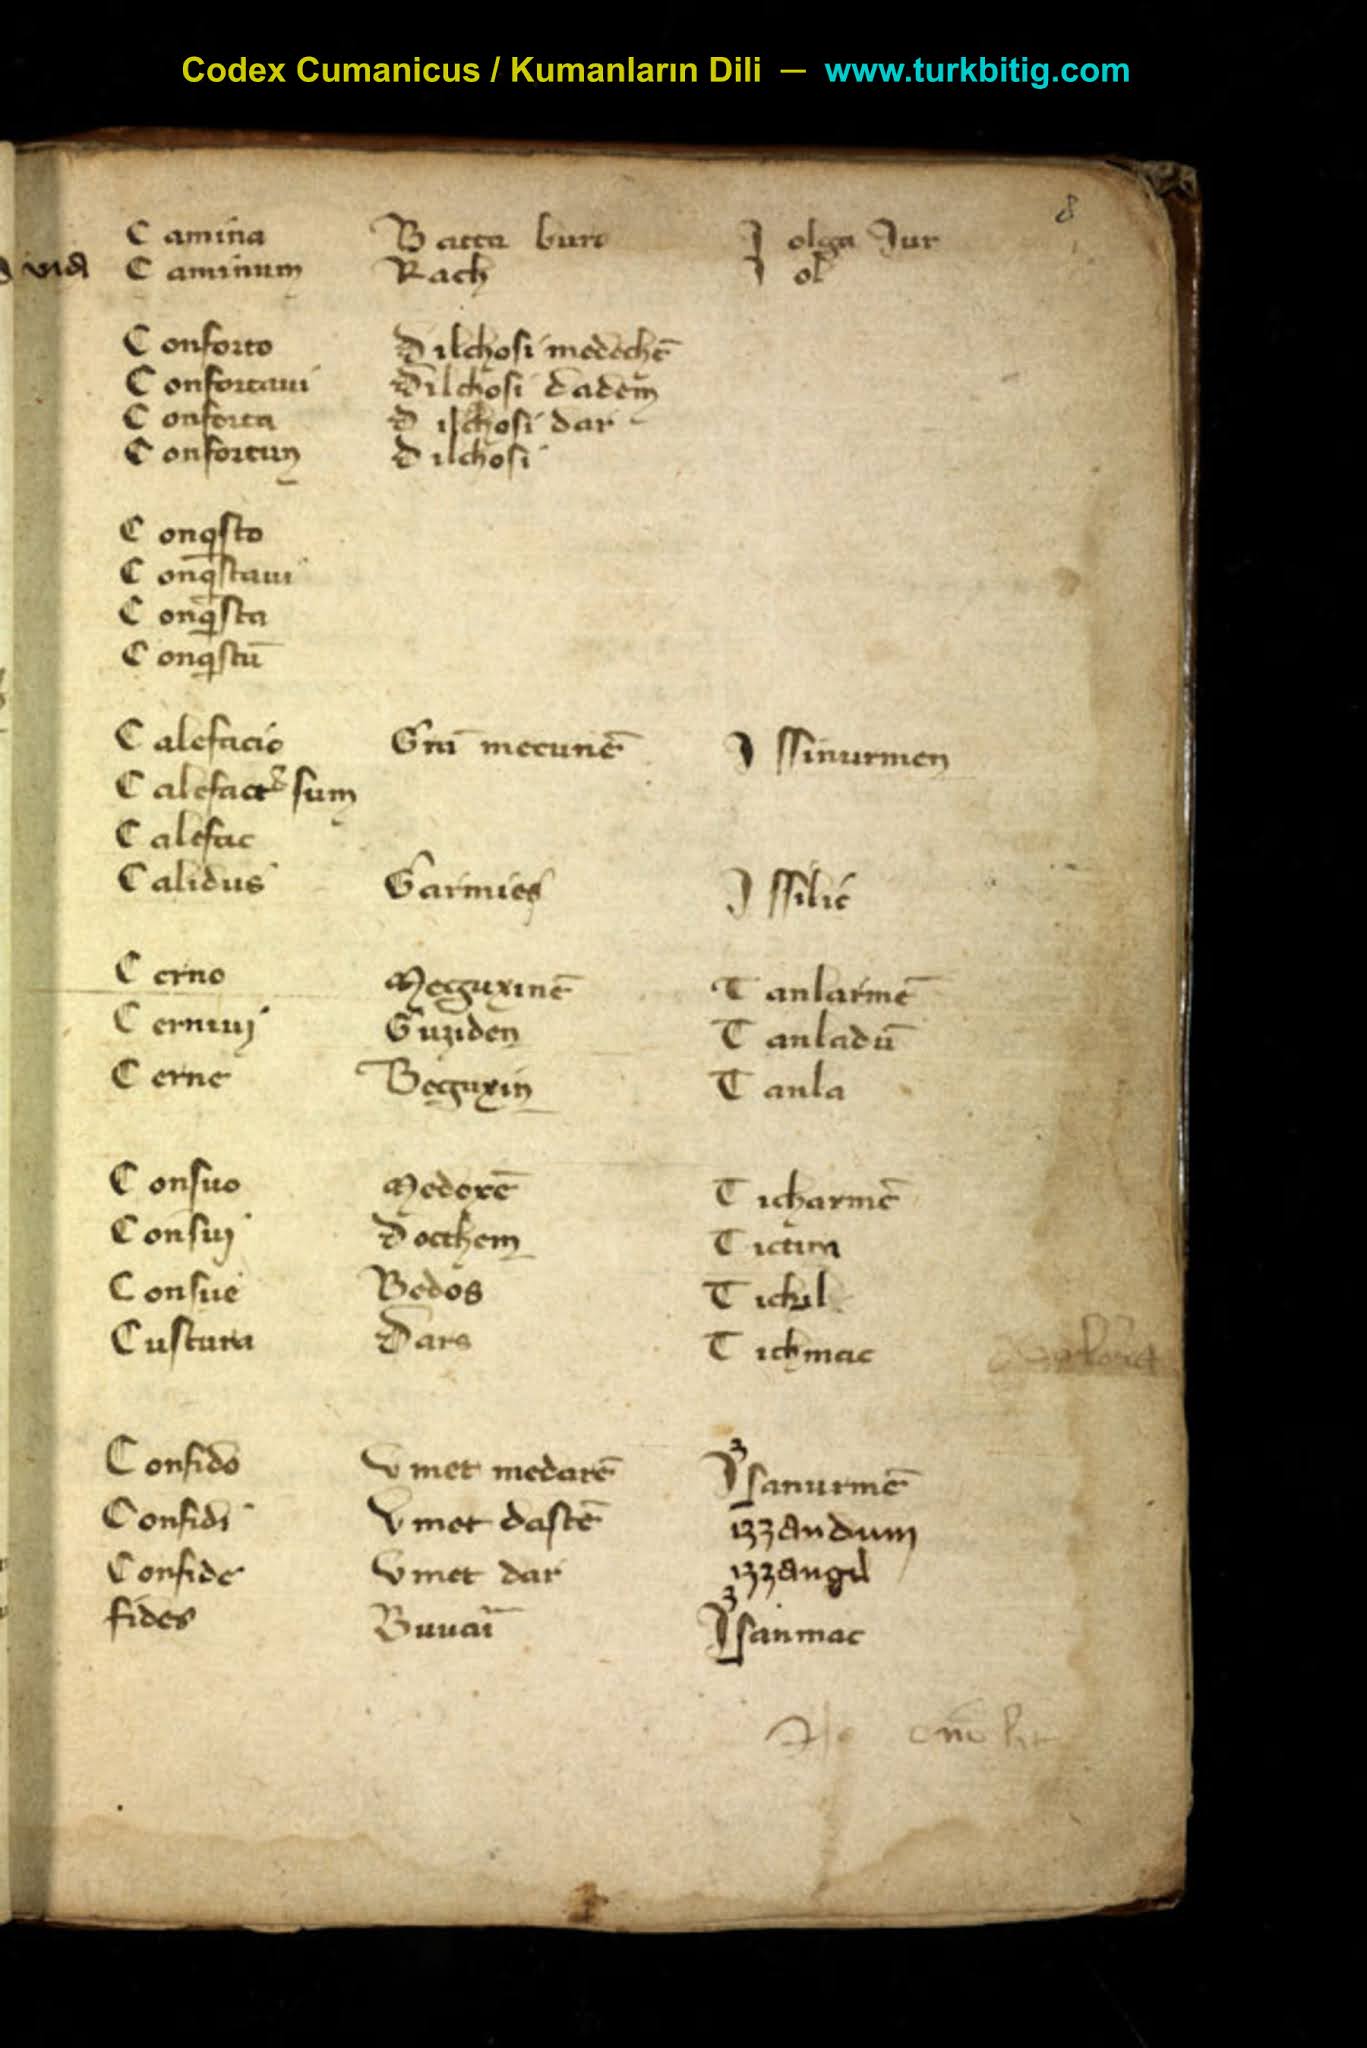 Codex Cumanicus / Kumanların Dili — www.turkbitig.com
8
Camina Batta buro Jolga Jur
Caminum Rach Jol
Conforto dilchosi medechē
Confortaui dilchosi dadem
Conforta dilchosi dar
Confortum dilchosi
Conqisto
Conqistaui
Conqista
Conqistū
Calefacio mecunē Jssinurmen
Calefact9 sum
Calefac
Calidus Garmies Jssilic
Cerno Meguxinē Tanlarmē
Cerniuj Guziden Tanladū
Cerne Beguxin Tanla
Consuo Medoxē Ticharmē
Consuj docthem Tictim
Consue Bedos Tichil
Custura Dars Tichmac
Confido Vmet medarē Jsanurmē
Confidi Vmet dastē izzandum
Confide Vmet dar izzangil
fides Jsanmac